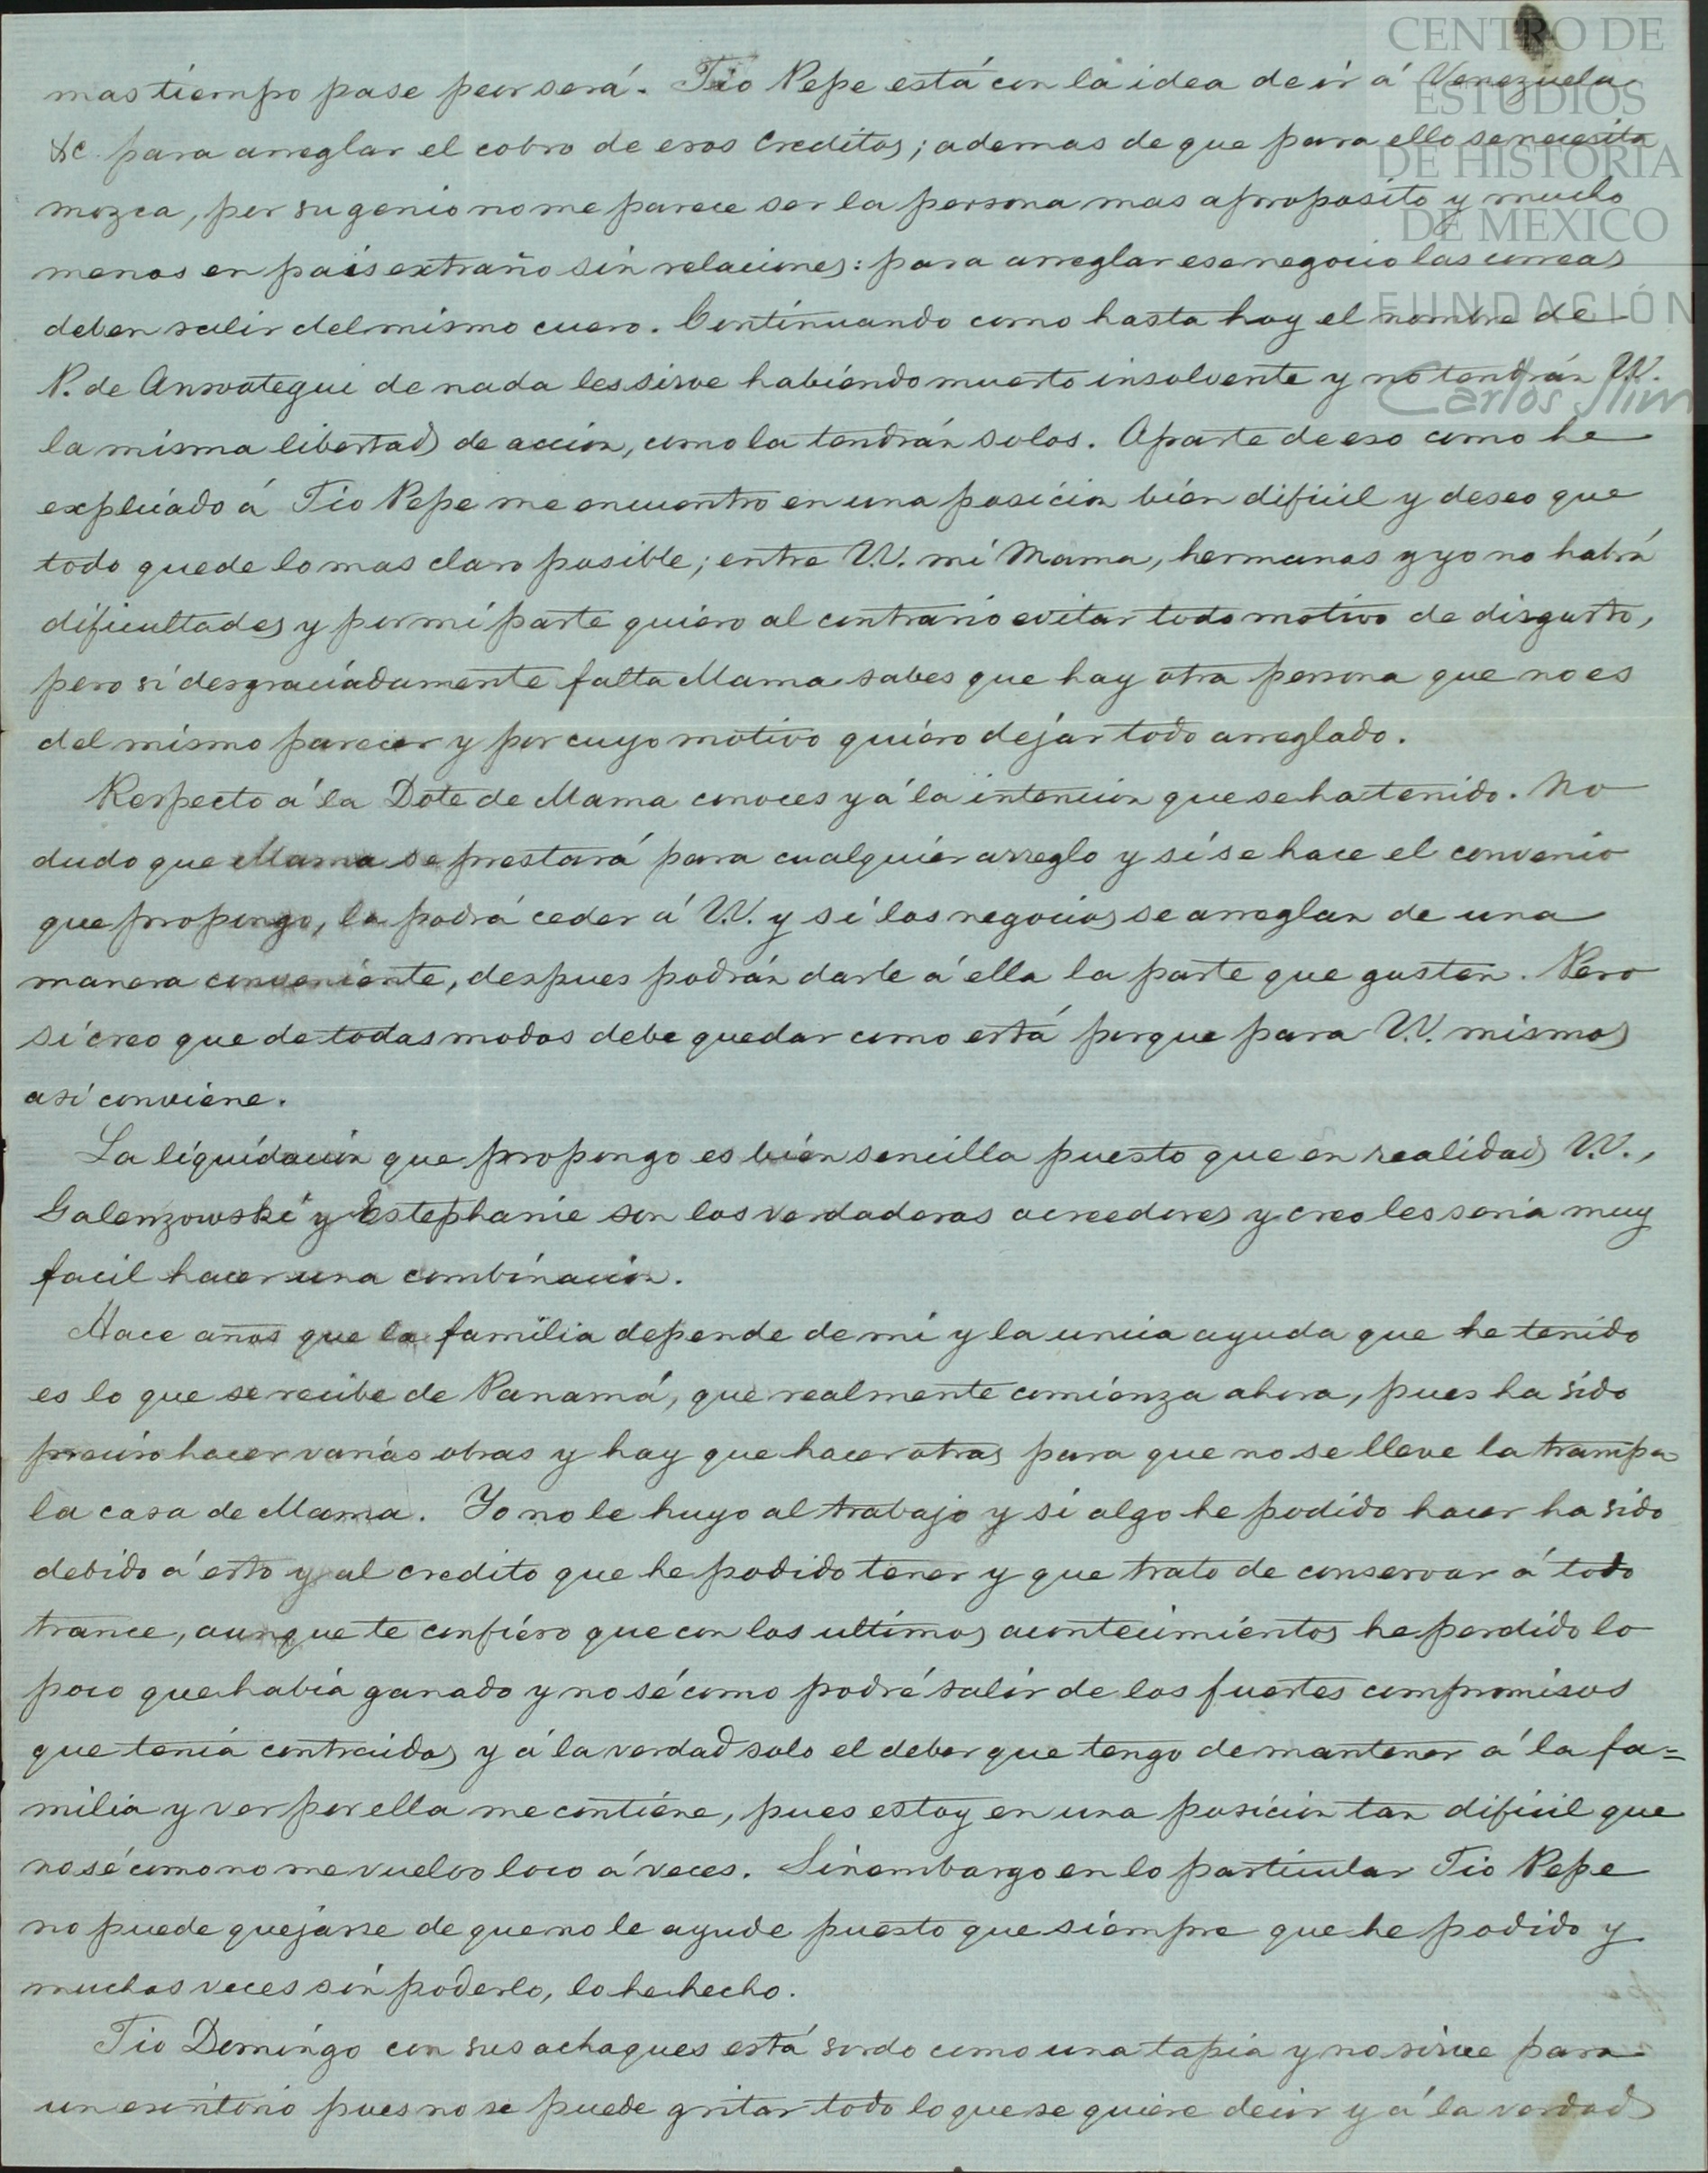 CENTRO DE
ESTUDIOS
DE HISTORIA
DE MEXICO
FUNDACIÓN
Carlos Slim
mas tiempo pase peor será. Tio Pepe está con la idea de ir á Venezuela
&c para arreglar el cobro de esos creditos; ademas de que para ello se necesita
mozca, por su genio no me parece ser la persona mas aproposito y mucho
menos en pais extraño sin relaciones: para arreglar ese negocio las correas
deben salir del mismo cuero. Continuando como hasta hoy el nombre de
P. de Ansoategui de nada les sirve habiendo muerto insolvente y no tendrán U.U.
la misma libertad de accion, como la tendrán solos. Aparte de eso como he
explicado á Tio Pepe me encuentro en una posicion bien dificil y deseo que
todo quede lo mas claro posible; entre U.U. mi Mama, hermanas y yo no habrá
dificultades y por mi parte quiero al contrario evitar todo motivo de disgusto,
pero si desgraciadamente falta Mama sabes que hay otra persona que no es
del mismo parecer y por cuyo motivo quiero dejar todo arreglado.
Respecto á la Dote de Mama conoces yá la intencion que se ha tenido. No
dudo que Mama se prestará para cualquier arreglo y si se hace el convenio
que propongo, la podrá ceder á U.U. y si los negocios se arreglan de una
manera conveniente, despues podrán darle á ella la parte que gusten. Pero
si creo que de todas modos debe quedar como está porque para U.U. mismos
asi conviene.
La liquidacion que propongo es bien sencilla puesto que en realidad U.U.,
Galenzowski y Estephanie son los verdaderos acreedores y creo les seria muy
facil hacer una combinacion.
Hace años que la familia depende de mi y la unica ayuda que he tenido
es lo que se recibe de Panamá, que realmente comienza ahora, pues ha sido
preciso hacer varias obras y hay que hacer otras para que no se lleve la trampa
la casa de Mama. Yo no le huyo al trabajo y si algo he podido hacer ha sido
debido á esto y al credito que he podido tener y que trato de conservar á todo
trance, aunque te confieso que con los ultimos acontecimientos he perdido lo
poco que habia ganado y no sé como podré salir de los fuertes compromisos
que tenia contraidos y á la verdad solo el deber que tengo de mantener á la fa=
milia y ver por ella me contiene, pues estoy en una posicion tan dificil que
no sé como no me vuelvo loco á veces. Sin embargo en lo particular Tio Pepe
no puede quejarse de que no le ayude puesto que siempre que he podido y
muchas veces sin poderlo, lo he hecho.
Tio Domingo con sus achaques está sordo como una tapia y no sirve para
un escritorio pues no se puede gritar todo lo que se quiere decir y á la verdad